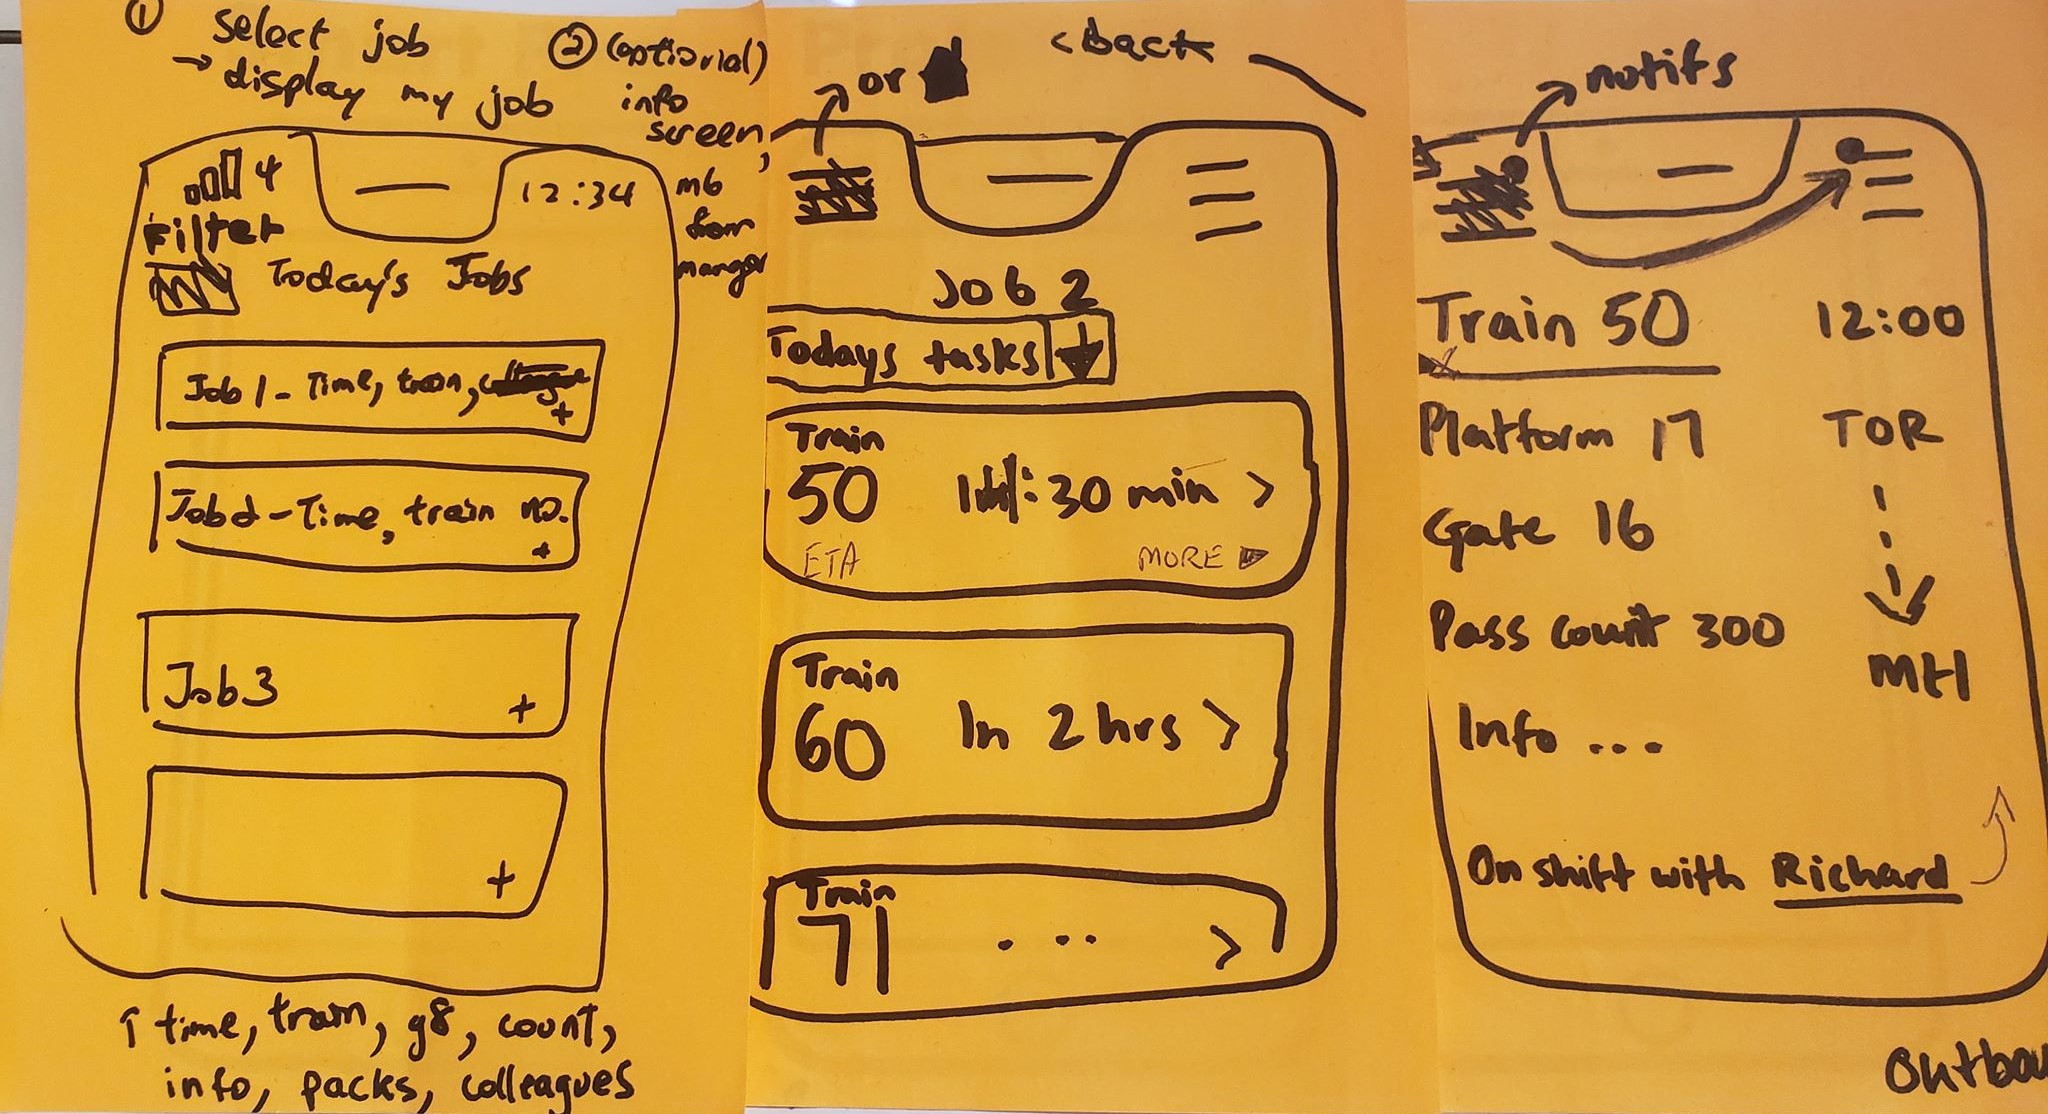 ① select job
→ display my job
② (optional)
info
screen,
from
manger
4
12:34
Filter
Today's Jobs
Job 1 - Time, train,
+
Job 2 - Time, train no.
+
Job 3
+
+
↑ time, train, g8, count,
info, packs, colleagues
or
<back
Job 2
Todays tasks
Train
50
:30 min >
ETA
MORE
Train
60
In 2 hrs >
Train
71
... >
notifs
Train 50
12:00
Platform 17
TOR
Gate 16
Pass count 300
MtI
Info ...
On shift with Richard
Outbou